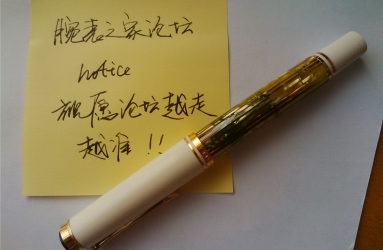 腕表之家论坛
notice
祝愿论坛越走
越准!!